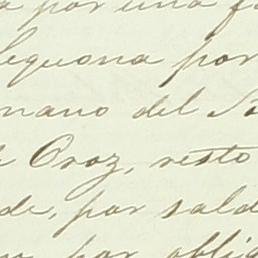 por una
Leguona por
mano del
Oroz, resto
de, por sald
por oblig